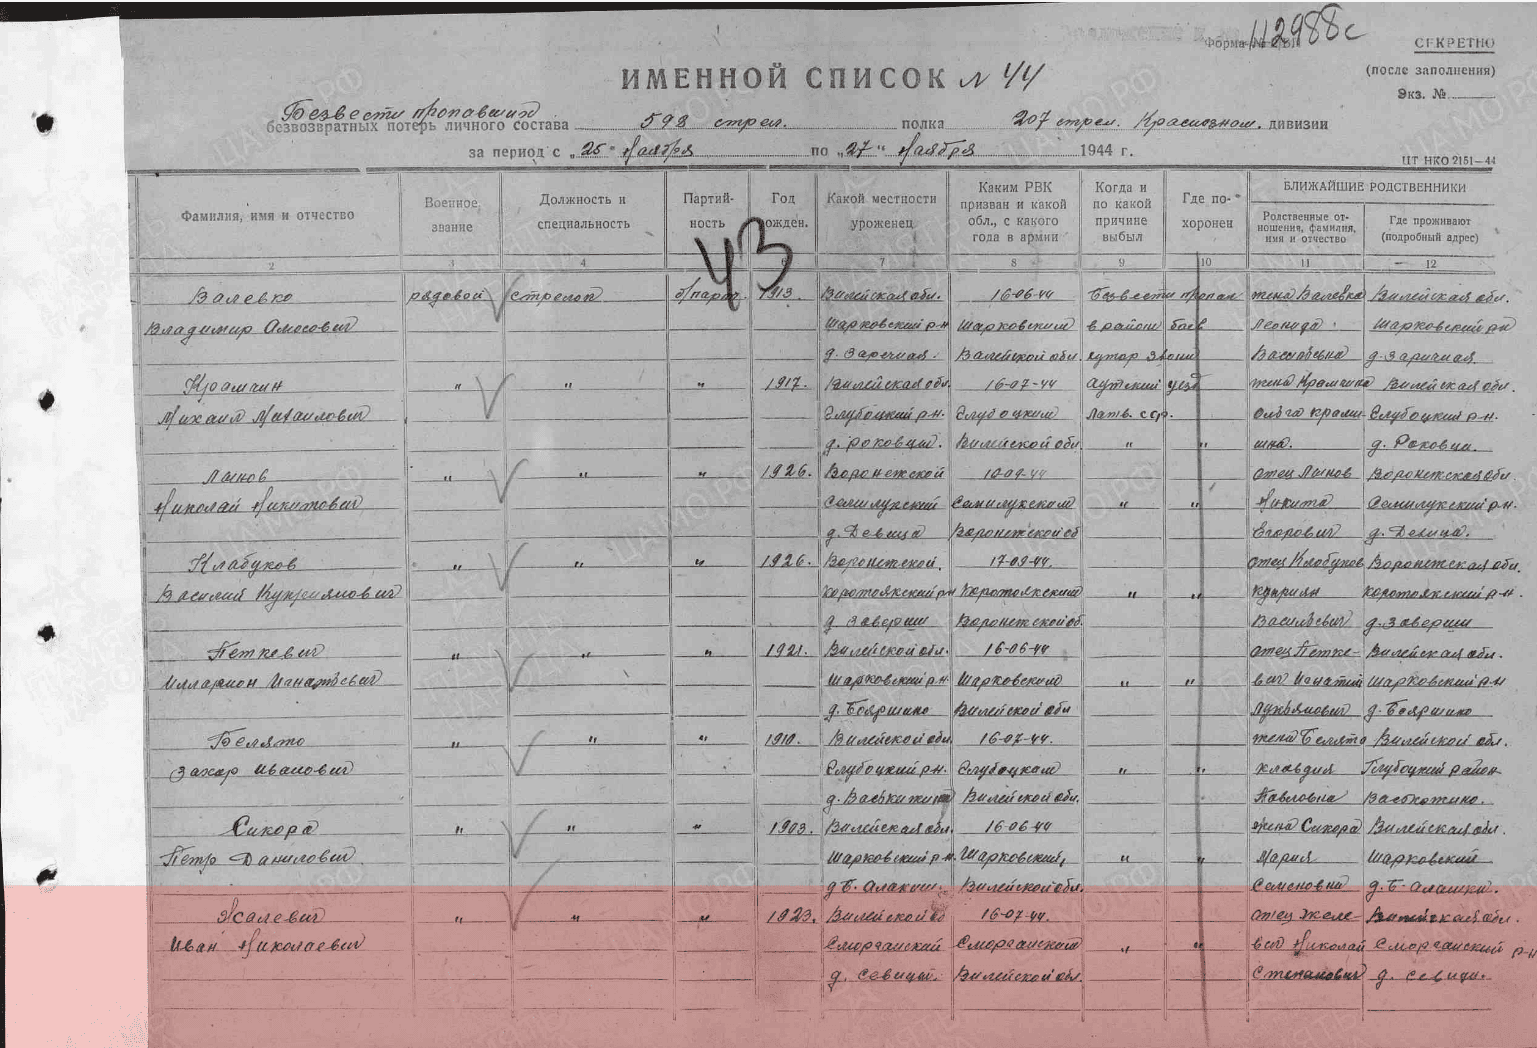 112988с
Форма № 2/БП
СЕКРЕТНО
(после заполнения)
Экз. №
ИМЕННОЙ СПИСОК N 44
Безвести пропавших
безвозвратных потерь личного состава 598 стрел. полка 207 стрел. Краснознам. дивизии
за период с „25" Ноября по „27" Ноября 1944 г.
ЦТ НКО 2151—44
Фамилия, имя и отчество Военное звание Должность и специальность Партийность Год рожден. Какой местности уроженец Каким РВК призван и какой обл., с какого года в армии Когда и по какой причине выбыл Где похоронен БЛИЖАЙШИЕ РОДСТВЕННИКИ
Родственные отношения, фамилия, имя и отчество Где проживают (подробный адрес)
2 3 4 6 7 8 9 10 11 12
43
Валевко рядовой стрелок б/парт. 1913. Вилейская обл. 16-06-44 Безвести пропал жена Валевка Вилейская обл.
Владимир Амосович Шарковский р-н Шарковским в район боев Леонида Шарковский рн
д. Заречная. Вилейской обл. хутор Звони Васильевна д. Заричная.
Крамчин " " " 1917. Вилейская обл. 16-07-44 аутский уезд жена Крамчина Вилейская обл.
Михаил Михаилович Глубоцкий р-н. Глубоцким Латв. сср. Ольга Крам- Глубоцкий р-н.
д. Роковци. Вилейской обл. " " д. Роковци.
Лынов " " " 1926. Воронежской 10-09-44 отец Лынов Воронежская обл.
Николай Никитович Семилукский Семилукским " " Никита Семилукский р-н.
д. Девица Воронежской об Егорович д. Девица.
Клабуков " " " 1926. Воронежской. 17-09-44. отец Клабуков Воронежская обл.
Василий Куприянович Коротоякский р-н Коротоякским " " Куприян Коротоякский р-н.
д. Заверши Воронежской об. Васильевич д. Заверши
Петкевич " " " 1921. Вилейской обл. 16-06-44 отец Петке- Вилейская обл.
Илларион Игнатьевич Шарковский р-н Шарковским " " вич Игнатий Шарковский р-н
д. Бояршино Вилейской обл Лукьянович д. Бояршино
Белято " " " 1910. Вилейской обл. 16-07-44. жена Белято Вилейской обл.
Захар Иванович Глубоцкий р-н. Глубоцким " " Клавдия Глубоцкий район
Вилейской обл. Павловна
Сикора " " " 1903. Вилейская обл. 16-06-44 жена Сикора Вилейская обл.
Петр Данилович. Шарковский р-н. Шарковский, " " Мария Шарковский
д. Б. Алашки. Вилейской обл. Семеновна д. Б-Алашки.
Жалевич " " " 1923. Вилейской об 16-07-44. отец Желе- Вилейская обл.
Иван Николаевич Сморганский Сморганским " " вич Николай Сморганский р-н
д. Севици. Вилейской обл. Степанович д. Севици.